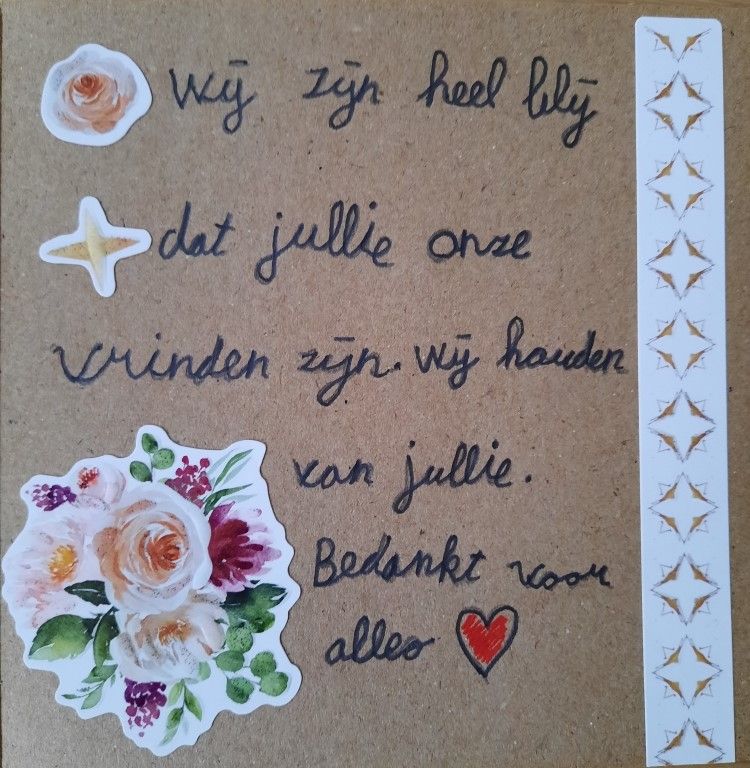 Wij zijn heel blij
dat jullie onze
vrinden zijn. Wij houden
van jullie.
Bedankt voor
alles